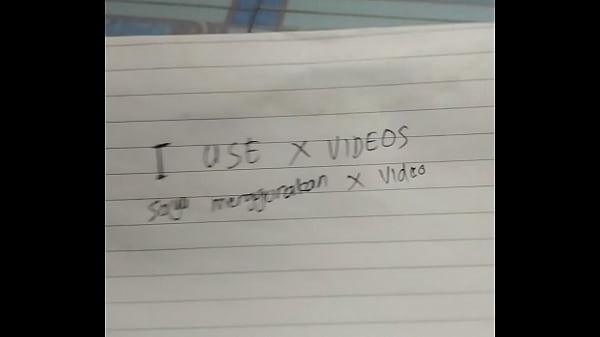 I USE X VIDEOS
saya menggunakan X Video